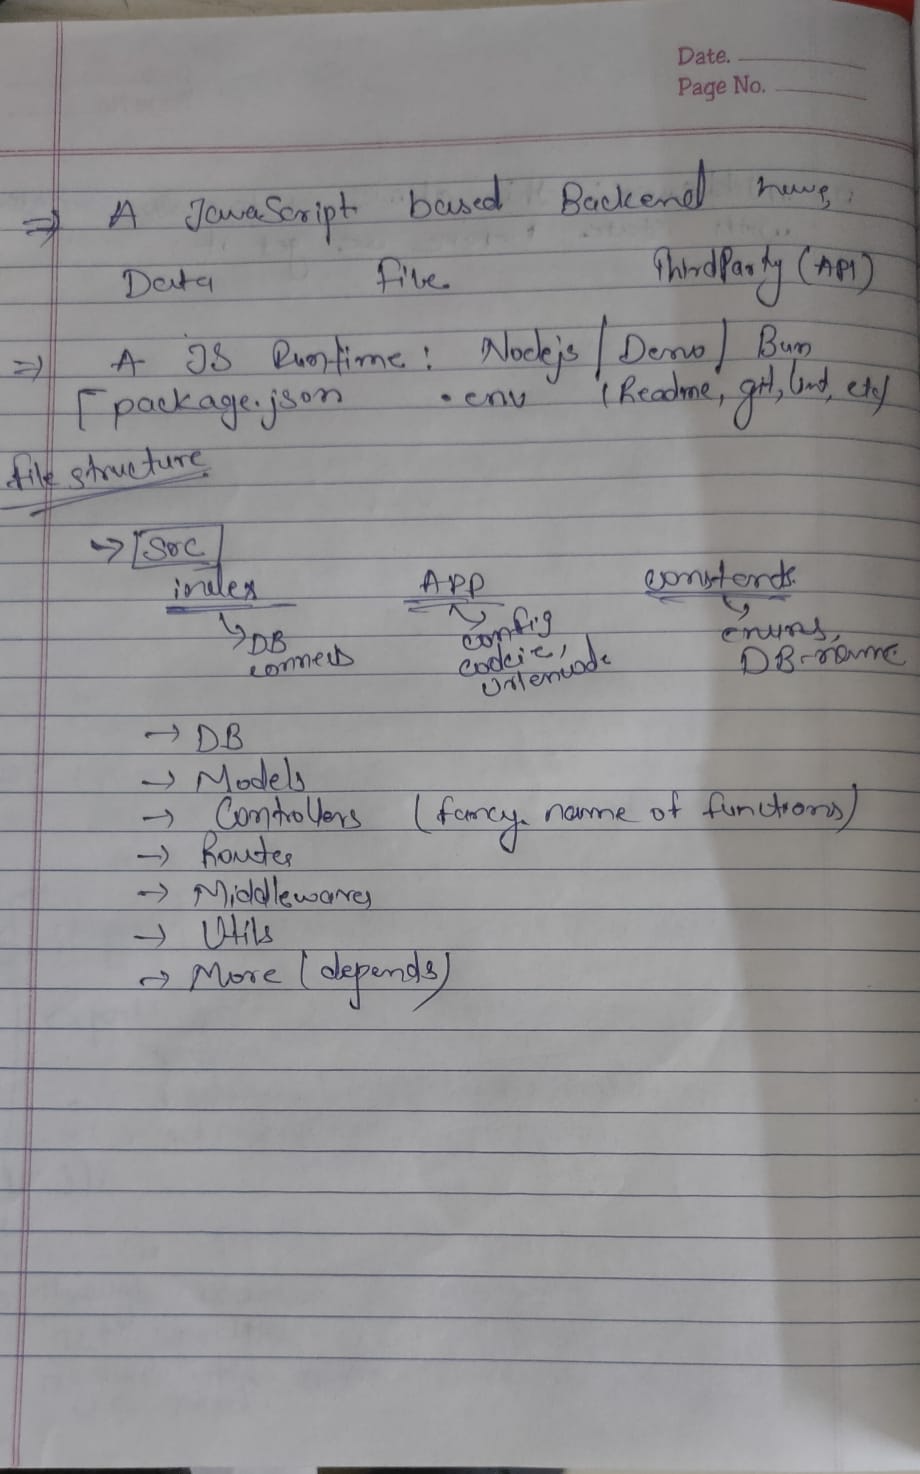 Date.
Page No.
⇒ A JavaScript based Backend
Data File ThirdParty (API)
⇒ A JS Runtime: Nodejs / Deno / Bun
[ package.json .env (Readme, git, lint, etc)
file structure
→ Src
index App constants
↳ DB connects ↳ config cookie, urlencode ↳ enums, DB-name
→ DB
→ Models
→ Controllers (fancy name of functions)
→ Routes
→ Middlewares
→ Utils
→ More (depends)